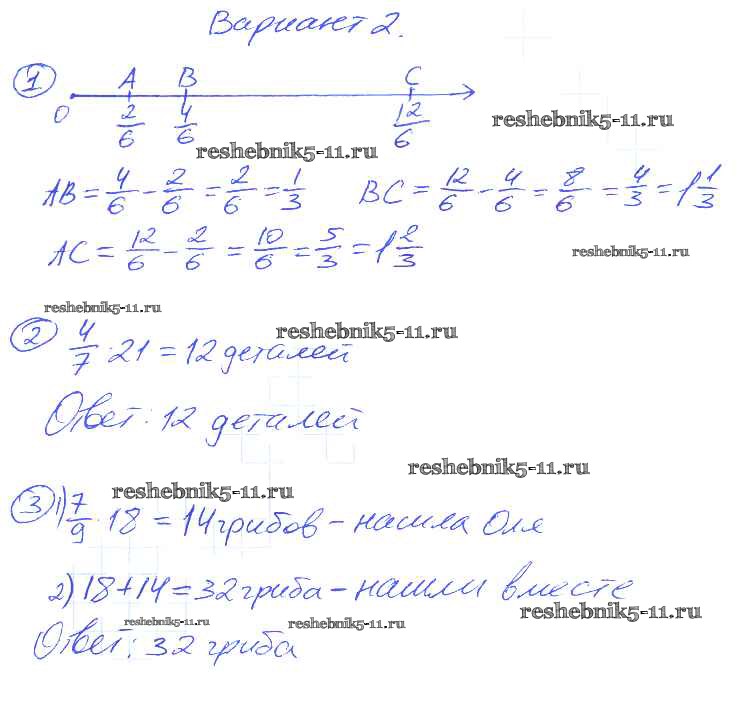 Вариант 2.
1
A B C
0 2/6 4/6 12/6
reshebnik5-11.ru
reshebnik5-11.ru
AB = 4/6 - 2/6 = 2/6 = 1/3 BC = 12/6 - 4/6 = 8/6 = 4/3 = 1 1/3
AC = 12/6 - 2/6 = 10/6 = 5/3 = 1 2/3
reshebnik5-11.ru
reshebnik5-11.ru
reshebnik5-11.ru
2 4/7 · 21 = 12 деталей
Ответ: 12 деталей
reshebnik5-11.ru
reshebnik5-11.ru
3 1) 7/9 · 18 = 14 грибов - нашла Оля
2) 18 + 14 = 32 гриба - нашли вместе
reshebnik5-11.ru
reshebnik5-11.ru
reshebnik5-11.ru
Ответ: 32 гриба